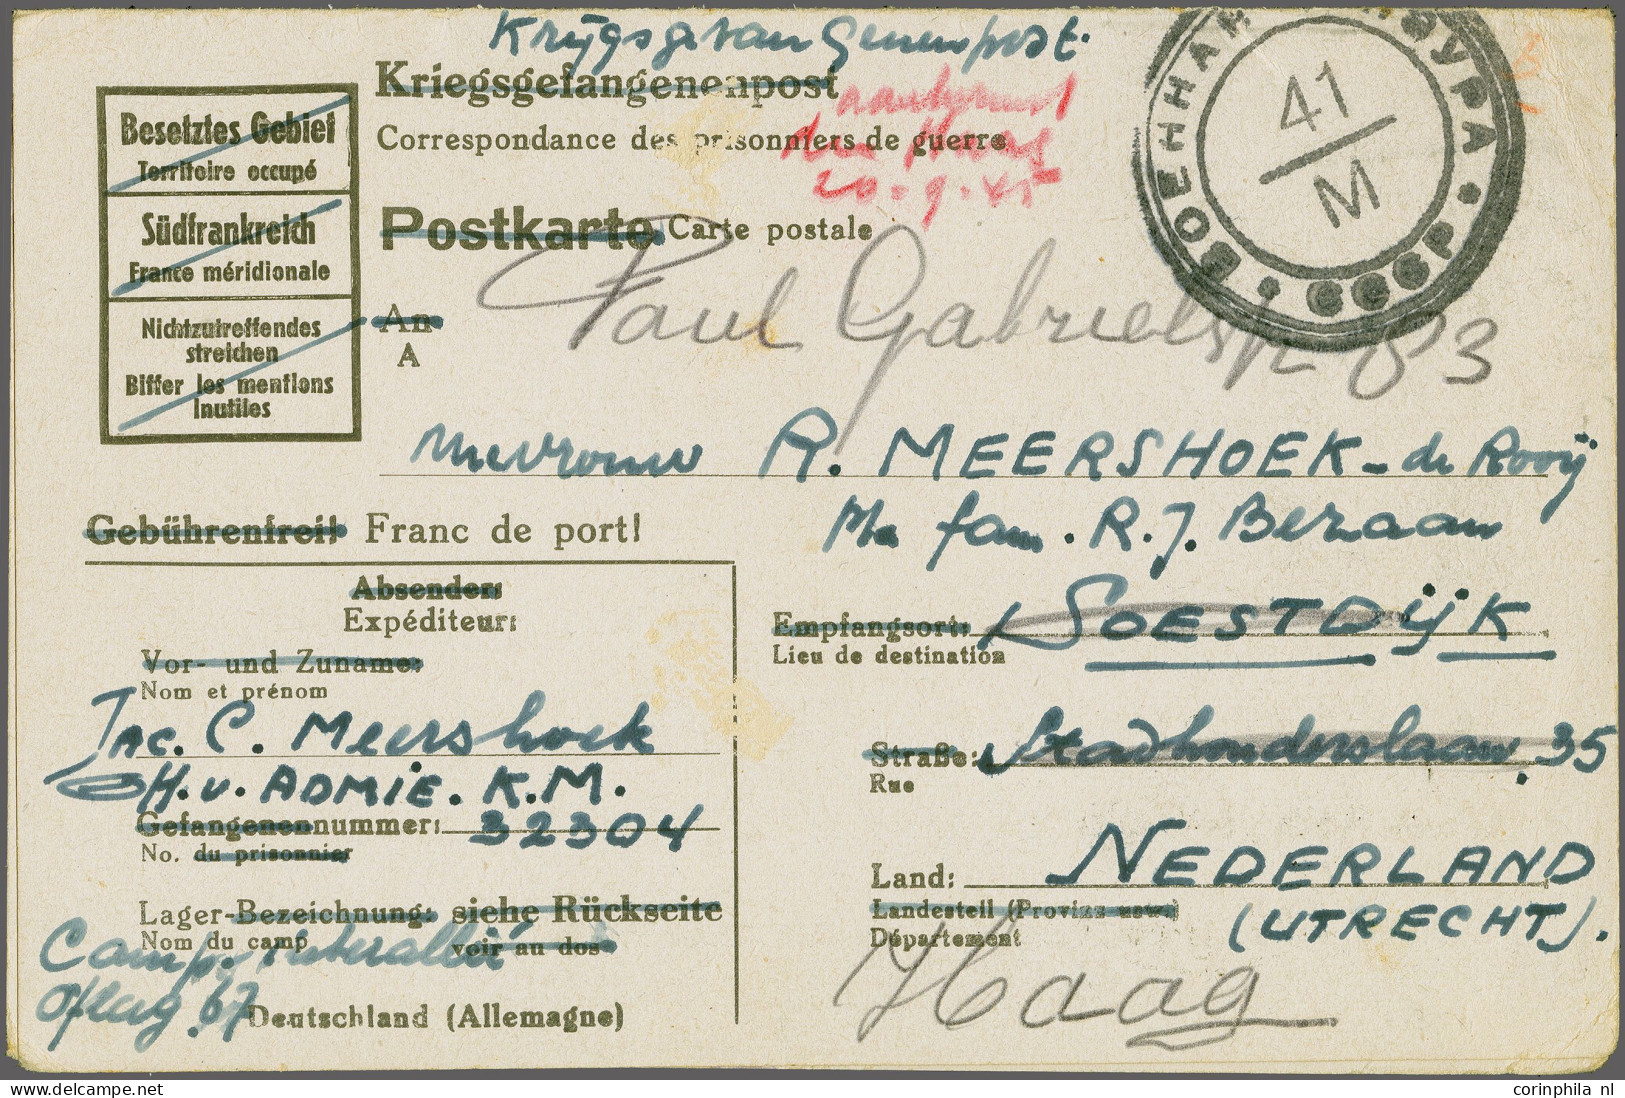 Krijgsgevangenenpost.
Kriegsgefangenenpost
Correspondance des prisonniers de guerre
20-9-45
Postkarte Carte postale
Besetztes Gebiet
Territoire occupé
Südfrankreich
France méridionale
Nichtzutreffendes
streichen
Biffer les mentions
inutiles
ВОЕННАЯ ЦЕНЗУРА
СССР
41
М
An
A
Paul Gabrielstr 83
Mevrouw R. MEERSHOEK-de Rooij
fam. R.J. Beraan
Gebührenfrei! Franc de port!
Absender:
Expéditeur:
Vor- und Zuname:
Nom et prénom
Jac. C. Meershoek
H.v. ADMIE. K.M.
Gefangenennummer: 32304
No. du prisonnier
Lager-Bezeichnung: siehe Rückseite
Nom du camp voir au dos
Camp. interallié
Oflag 67
Deutschland (Allemagne)
Empfangsort: SOESTDijK
Lieu de destination
Straße: Stadhouderslaan. 35
Rue
Land: NEDERLAND
Landesteil (Provinz usw.)
Département
(UTRECHT).
Haag
corinphila nl